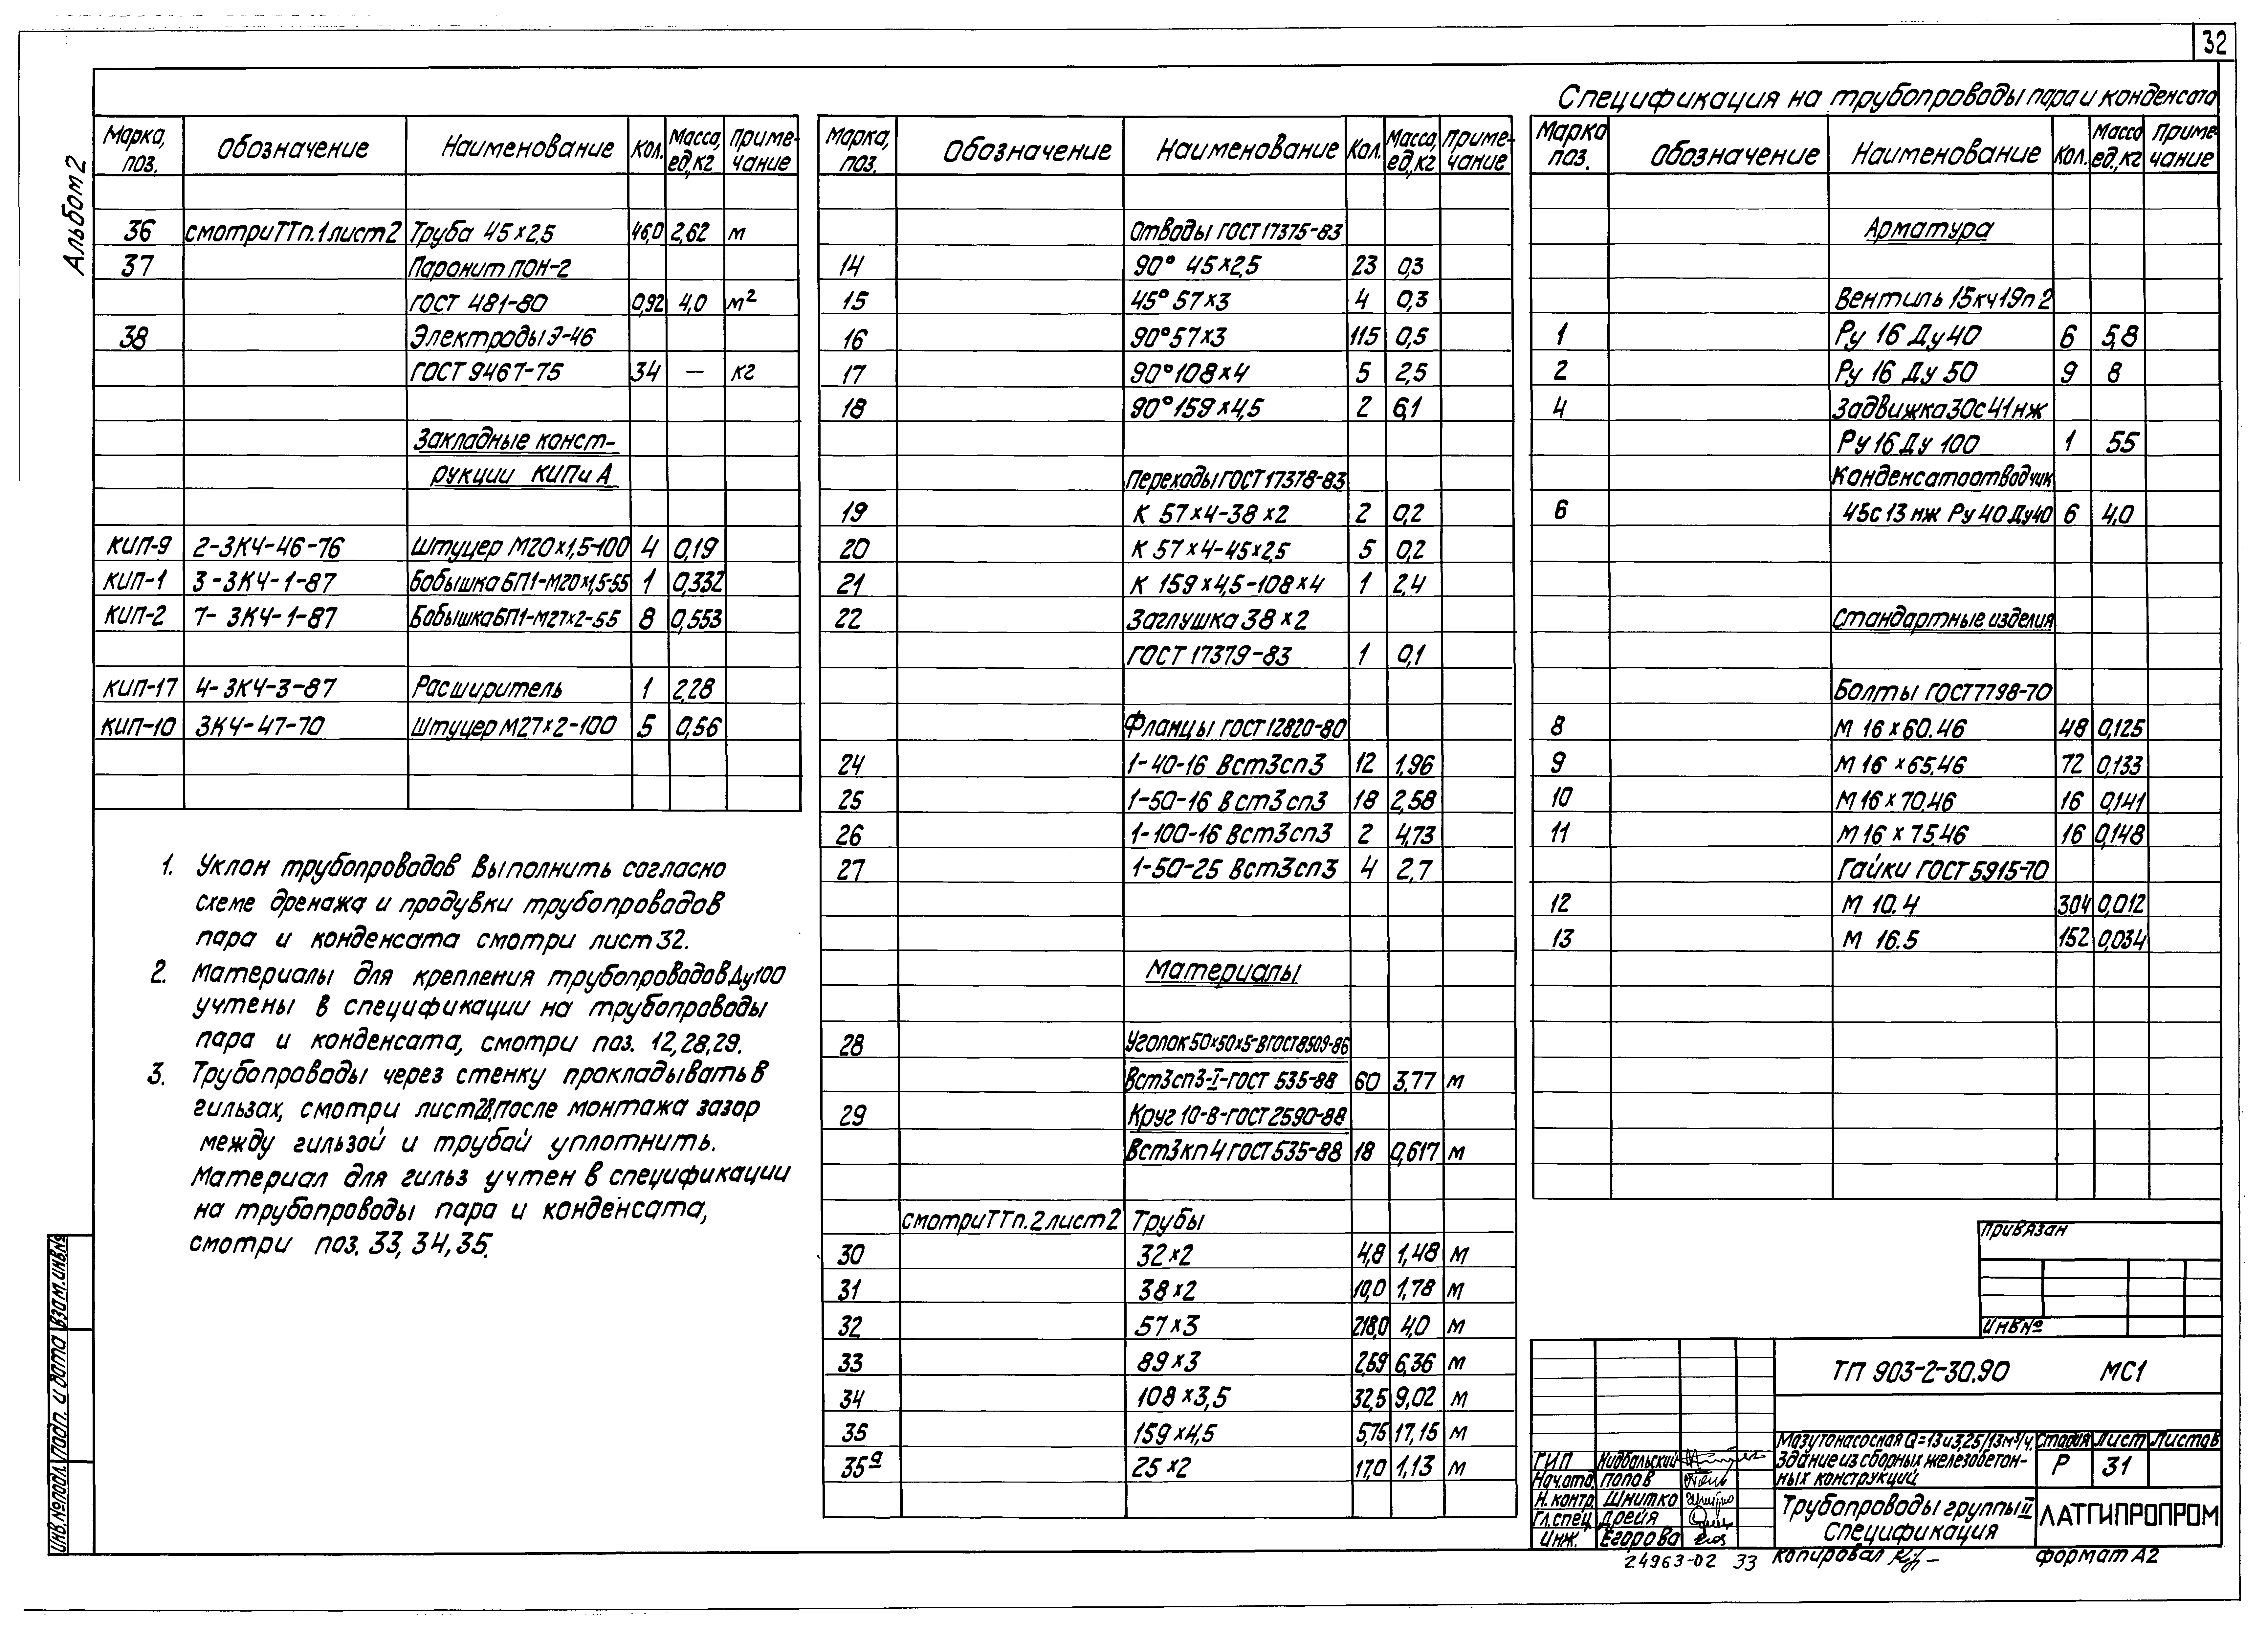 32
Альбом 2
Спецификация на трубопроводы пара и конденсата
Марка, поз. Обозначение Наименование Кол. Масса, ед., кг Приме-чание
36 смотри ТТ п.1 лист 2 Труба 45×2,5 46,0 2,62 м
37 Паронит ПОН-2
ГОСТ 481-80 0,92 4,0 м²
38 Электроды Э-46
ГОСТ 9467-75 34 — кг
Закладные конст-
рукции КИП и А
КИП-9 2-ЗКЧ-46-76 Штуцер М20×1,5-100 4 0,19
КИП-1 3-ЗКЧ-1-87 Бобышка БП1-М20×1,5-55 1 0,332
КИП-2 7-ЗКЧ-1-87 Бобышка БП1-М27×2-55 8 0,553
КИП-17 4-ЗКЧ-3-87 Расширитель 1 2,28
КИП-10 ЗКЧ-47-70 Штуцер М27×2-100 5 0,56
1. Уклон трубопроводов выполнить согласно
схеме дренажа и продувки трубопроводов
пара и конденсата смотри лист 32.
2. Материалы для крепления трубопроводов Ду100
учтены в спецификации на трубопроводы
пара и конденсата, смотри поз. 12, 28, 29.
3. Трубопроводы через стенку прокладывать в
гильзах, смотри лист 28, после монтажа зазор
между гильзой и трубой уплотнить.
Материал для гильз учтен в спецификации
на трубопроводы пара и конденсата,
смотри поз. 33, 34, 35.
Марка, поз. Обозначение Наименование Кол. Масса, ед., кг Приме-чание
Отводы ГОСТ 17375-83
14 90° 45×2,5 23 0,3
15 45° 57×3 4 0,3
16 90° 57×3 115 0,5
17 90° 108×4 5 2,5
18 90° 159×4,5 2 6,1
Переходы ГОСТ 17378-83
19 К 57×4-38×2 2 0,2
20 К 57×4-45×2,5 5 0,2
21 К 159×4,5-108×4 1 2,4
22 Заглушка 38×2
ГОСТ 17379-83 1 0,1
Фланцы ГОСТ 12820-80
24 1-40-16 Вст3сп3 12 1,96
25 1-50-16 Вст3сп3 18 2,58
26 1-100-16 Вст3сп3 2 4,73
27 1-50-25 Вст3сп3 4 2,7
Материалы
28 Уголок 50×50×5-В ГОСТ 8509-86
Вст3сп3-I-ГОСТ 535-88 60 3,77 м
29 Круг 10-В-ГОСТ 2590-88
Вст3кп4 ГОСТ 535-88 18 0,617 м
смотри ТТ п.2 лист 2 Трубы
30 32×2 4,8 1,48 м
31 38×2 10,0 1,78 м
32 57×3 218,0 4,0 м
33 89×3 2,69 6,36 м
34 108×3,5 32,5 9,02 м
35 159×4,5 5,75 17,15 м
35а 25×2 17,0 1,13 м
Марка поз. Обозначение Наименование Кол. Масса ед., кг Приме-чание
Арматура
Вентиль 15кч19п2
1 Ру 16 Ду 40 6 5,8
2 Ру 16 Ду 50 9 8
4 Задвижка 30с41нж
Ру 16 Ду 100 1 55
Конденсатоотводчик
6 45с13нж Ру 40 Ду 40 6 4,0
Стандартные изделия
Болты ГОСТ 7798-70
8 М 16×60.46 48 0,125
9 М 16×65.46 72 0,133
10 М 16×70.46 16 0,141
11 М 16×75.46 16 0,148
Гайки ГОСТ 5915-70
12 М 10.4 304 0,012
13 М 16.5 152 0,034
Привязан
Инв №
ТП 903-2-30.90 МС1
Мазутонасосная Q=13 и 3,25/13 м³/ч.
Здание из сборных железобетон-
ных конструкций
Стадия Лист Листов
Р 31
Трубопроводы группы II
Спецификация
ЛАТГИПРОПРОМ
ГИП Нидбальский
Нач.отд. Попов
Н. контр. Шнитко
Гл.спец. Дрейя
Инж. Егорова
24963-02 33 Копировал Формат А2
Инв.№подл. Подп. и дата Взам.инв.№